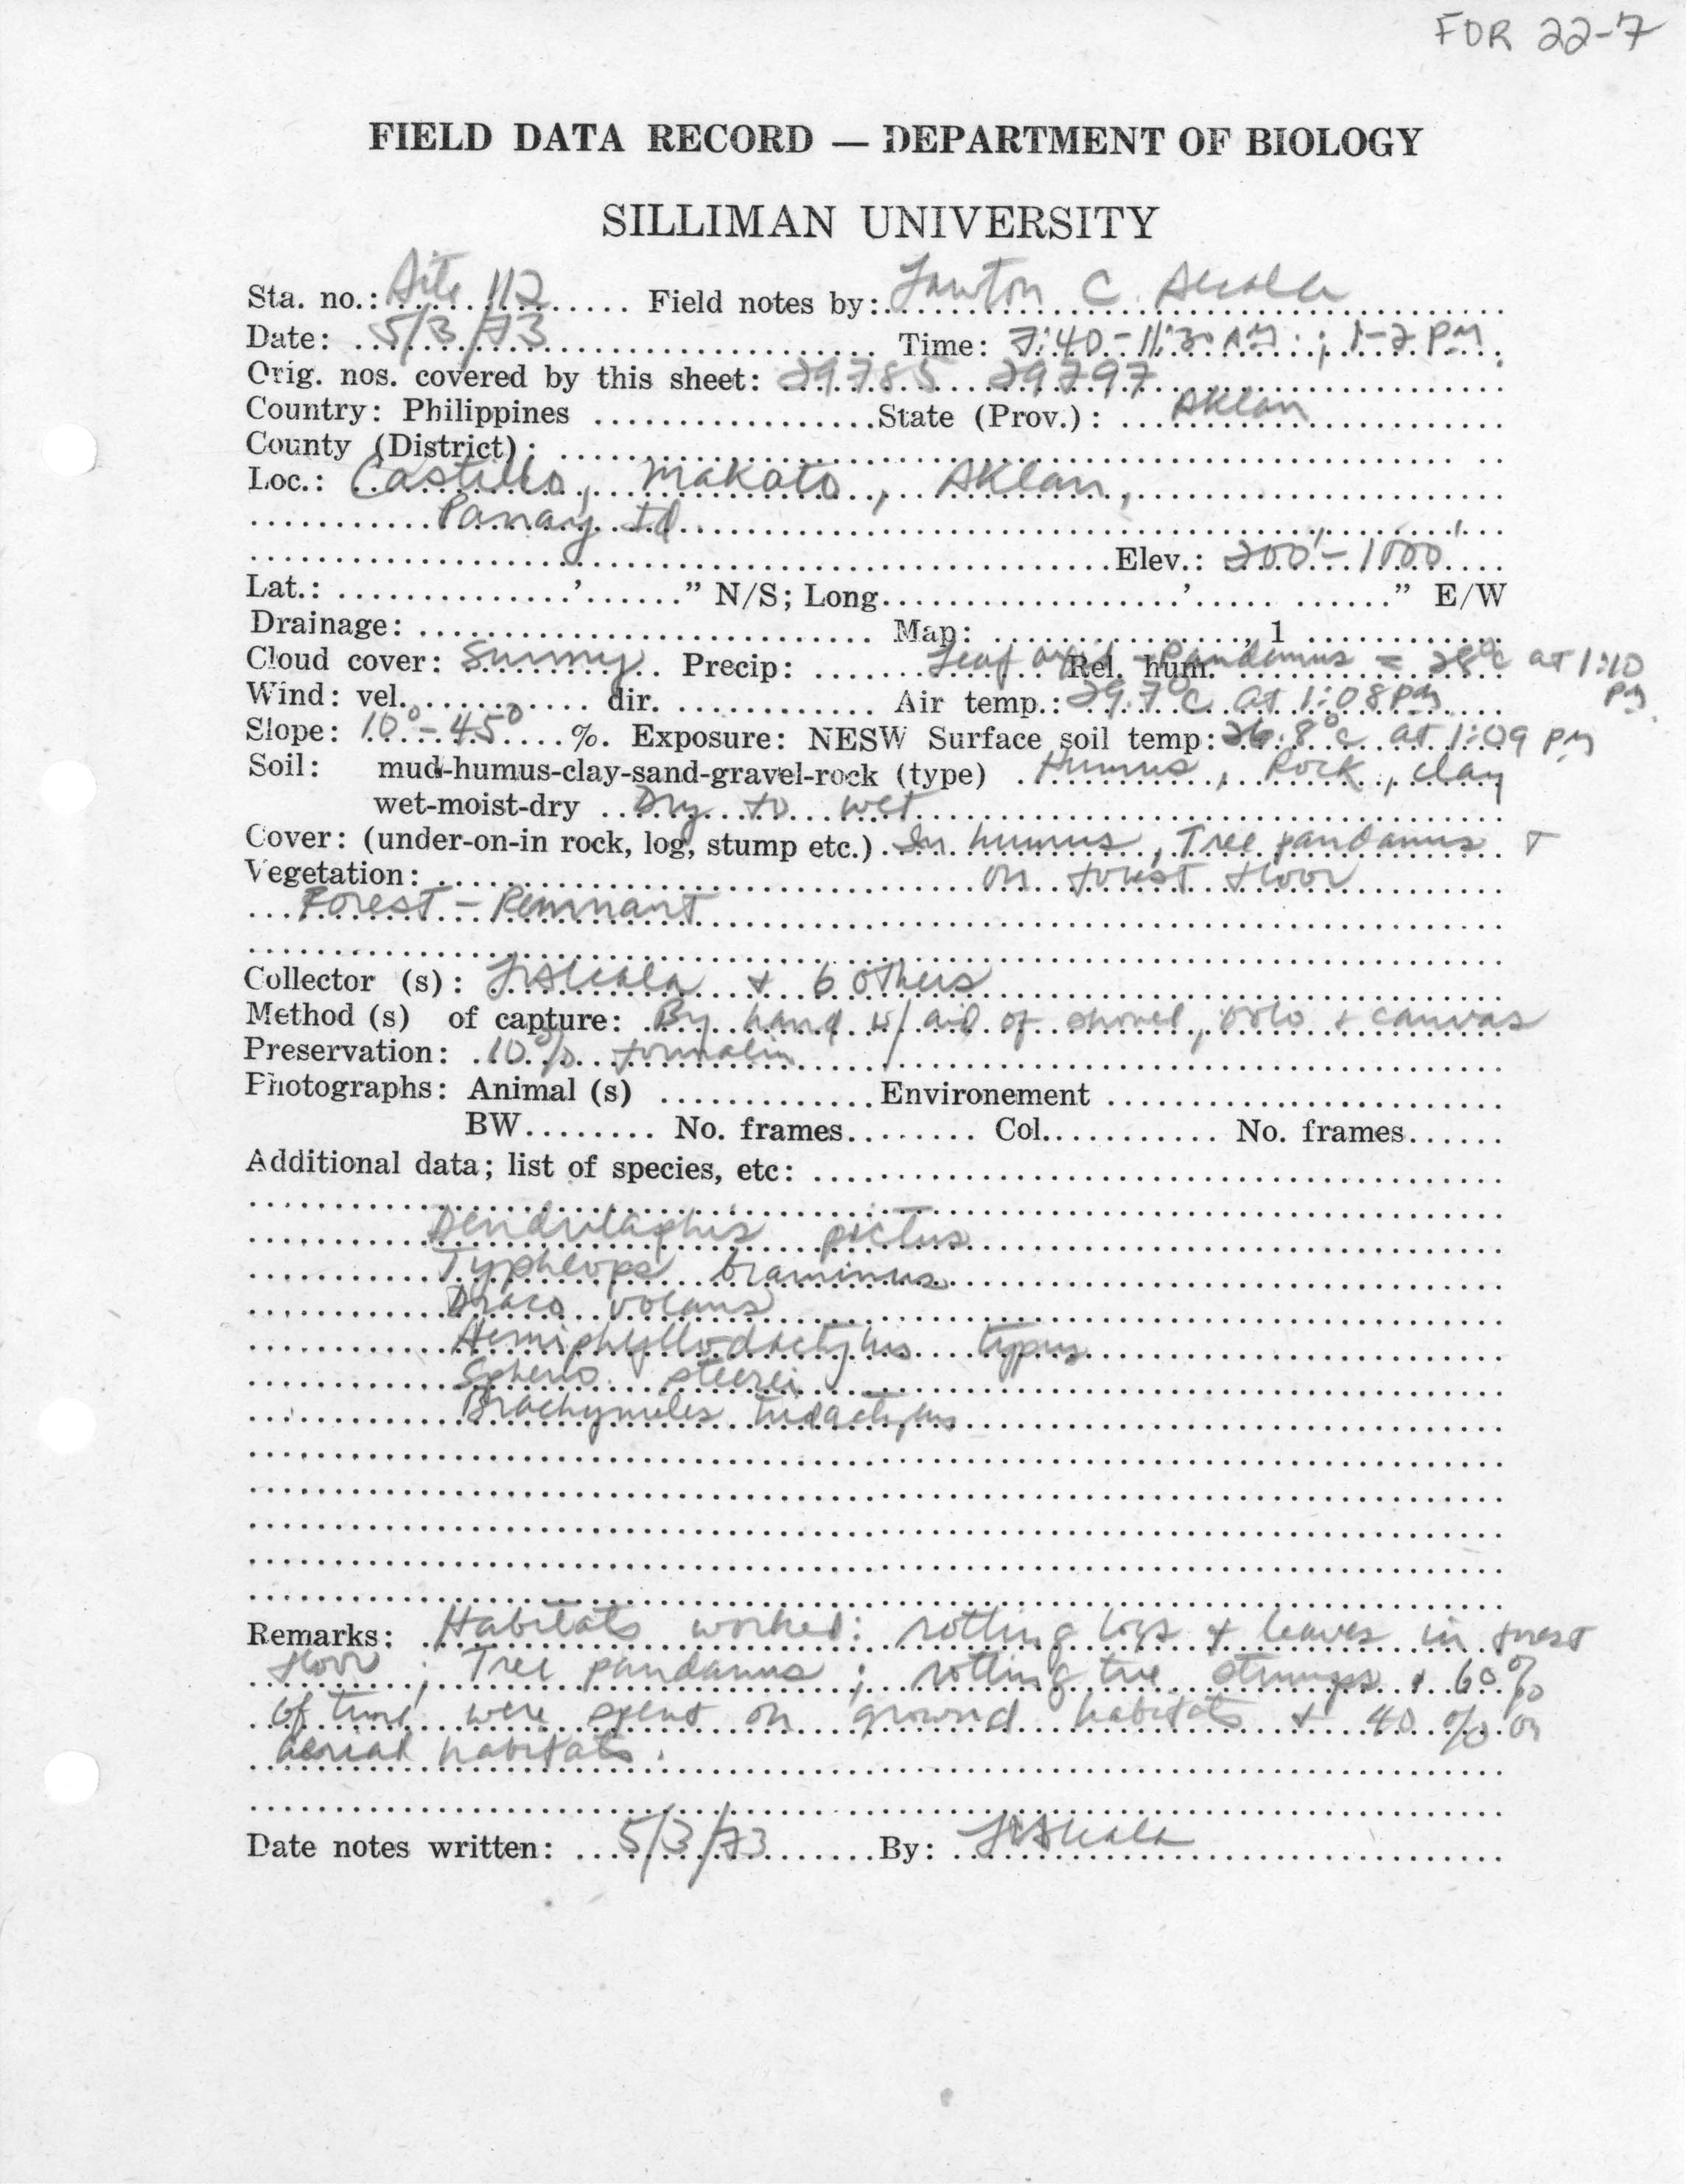 FOR 22-7
FIELD DATA RECORD — DEPARTMENT OF BIOLOGY
SILLIMAN UNIVERSITY
Sta. no.: Site 112 Field notes by: Lawton C. Alcala
Date: 5/3/73 Time: 7:40-11:30 AM ; 1-2 PM
Orig. nos. covered by this sheet: 29785 29797
Country: Philippines State (Prov.): Aklan
County (District):
Loc.: Castillo, Makato, Aklan,
Panay Id
Elev.: 200'-1000'
Lat.: ' " N/S; Long. ' " E/W
Drainage: Map: , 1
Cloud cover: Sunny Precip: Rel. hum. Leaf axil - Pandanus = 28°C at 1:10 PM
Wind: vel. dir. Air temp.: 29.7°C at 1:08 PM
Slope: 10°-45° %. Exposure: NESW Surface soil temp: 26.8°C at 1:09 PM
Soil: mud-humus-clay-sand-gravel-rock (type) Humus, Rock, clay
wet-moist-dry Dry to wet
Cover: (under-on-in rock, log, stump etc.) In humus, Tree pandanus +
Vegetation: on forest floor
Forest - Remnant
Collector (s): LCAlcala + 6 others
Method (s) of capture: By hand w/ aid of shovel, bolo + canvas
Preservation: 10% formalin
Photographs: Animal (s) Environement
BW No. frames Col. No. frames
Additional data; list of species, etc:
Dendrelaphis pictus
Typhlops braminus
Draco volans
Hemiphyllodactylus typus
Spheno. steerei
Brachymeles tridactylus
Remarks: Habitats worked: rotting logs + leaves in forest
floor ; Tree pandanus ; rotting tree stumps. 60%
of time were spent on ground habitats + 40 % on
aerial habitats.
Date notes written: 5/3/73 By: LCAlcala